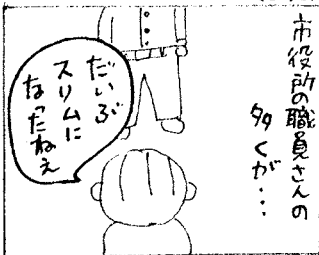 市役所の職員さんの
多くが・・・
だいぶ
スリムに
なったねえ